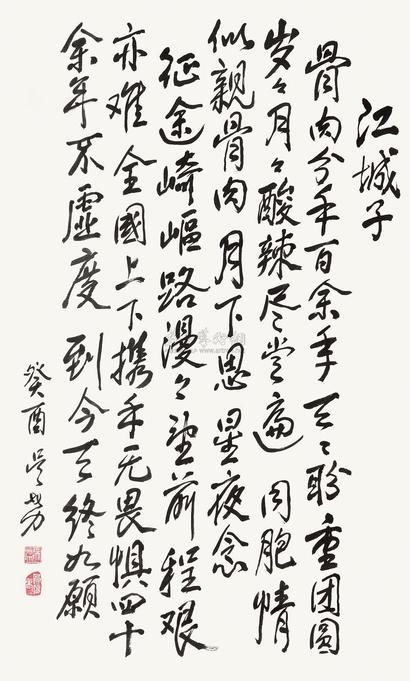 江城子
骨肉分手百余年天天盼重团圆
岁々月々酸辣尽尝遍 同胞情
似亲骨肉月下思星夜念
征途崎岖路漫々望前程艰
亦难全國上下携手无畏惧四十
余年不虚度 到今天终如愿
癸酉吴劳